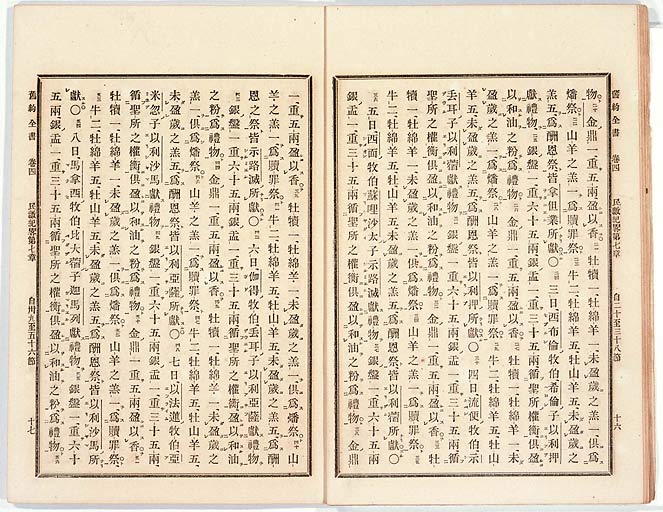 舊約全書 卷四 民數紀畧第七章 自二十至三十八節 十六
物。金鼎一重五兩盈以香。牡犢一牡綿羊一未盈歲之羔一俱爲
燔祭。山羊之羔一爲贖罪祭。牛二牡綿羊五牡山羊五未盈歲之
羔五爲酬恩祭皆拿但業所獻○三日西布倫牧伯希倫子以利押
獻禮物。銀盤一重六十五兩銀盂一重三十五兩循聖所權衡俱盈
以和油之粉爲禮物。金鼎一重五兩盈以香。牡犢一牡綿羊一未
盈歲之羔一俱爲燔祭。山羊之羔一爲贖罪祭。牛二牡綿羊五牡山
羊五未盈歲之羔五爲酬恩祭皆以利押所獻○四日流便牧伯示
丟耳子以利蓿獻禮物。銀盤一重六十五兩銀盂一重三十五兩循
聖所之權衡俱盈以和油之粉爲禮物。金鼎一重五兩盈以香。牡
犢一牡綿羊一未盈歲之羔一俱爲燔祭。山羊之羔一爲贖罪祭。
牛二牡綿羊五牡山羊五未盈歲之羔五爲酬恩祭皆以利蓿所獻○
五日西面牧伯蘇哩沙太子示路滅獻禮物。銀盤一重六十五兩
銀盂一重三十五兩循聖所之權衡俱盈以和油之粉爲禮物。金鼎
一重五兩盈以香。牡犢一牡綿羊一未盈歲之羔一俱爲燔祭。山
羊之羔一爲贖罪祭。牛二牡綿羊五牡山羊五未盈歲之羔五爲酬
恩之祭皆示路滅所獻○六日伽得牧伯丟耳子以利亞薩獻禮物
銀盤一重六十五兩銀盂一重三十五兩循聖所之權衡俱盈以和油
之粉爲禮物。金鼎一重五兩盈以香。牡犢一牡綿羊一未盈歲之
羔一俱爲燔祭。山羊之羔一爲贖罪祭。牛二牡綿羊五牡山羊五
未盈歲之羔五爲酬恩祭皆以利亞薩所獻○七日以法蓮牧伯亞
米忽子以利沙馬獻禮物。銀盤一重六十五兩銀盂一重三十五兩
循聖所之權衡俱盈以和油之粉爲禮物。金鼎一重五兩盈以香。
牡犢一牡綿羊一未盈歲之羔一俱爲燔祭。山羊之羔一爲贖罪祭。
牛二牡綿羊五牡山羊五未盈歲之羔五爲酬恩祭皆以利沙馬所
獻○八日馬拿西牧伯比大蓿子迦馬列獻禮物。銀盤一重六十
五兩銀盂一重三十五兩循聖所之權衡俱盈以和油之粉爲禮物。
舊約全書 卷四 民數紀畧第七章 自卅九至五十六節 十七